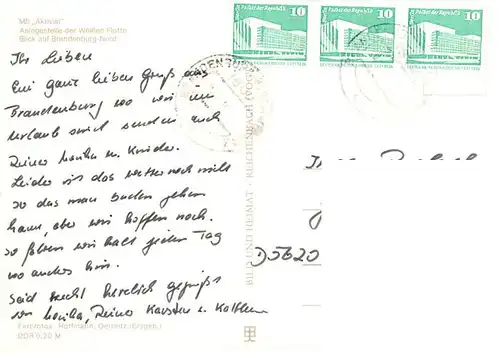 MS „Aktivist"
Anlegestelle der Weißen Flotte
Blick auf Brandenburg-Nord
Ihr Lieben
Ein ganz lieben Gruß aus
Brandenburg wo wir im
Urlaub sind senden euch
Heinz Monika u. Kinder.
Leider ist das Wetter noch nicht
so das man baden gehen
kann, aber wir hoffen noch.
So fahren wir halt jeden Tag
wo anders hin.
Seid recht herzlich gegrüßt
von Monika, Heinz Karsten u. Kathleen
Farbfotos: Hoffmann, Gelenau (Erzgeb.)
DDR 0,20 M
BILD UND HEIMAT · REICHENBACH (VOGTL)
Palast der Republik 10
Palast der Republik 10
Palast der Republik 10
D5620